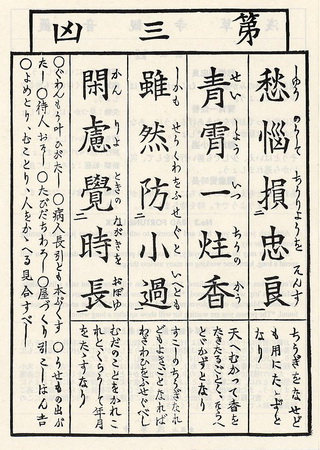 第三凶
しゆう のうして ちうりようを そんす
愁惱損二忠良一
ちうぎをなせど
も用にたゝずと
なり
せい しよう いつ ちうの かう
青霄一炷香
天へむかつて香を
たきたるごとく、そらへ
とゞかずとなり
しかも せうくわをふせぐと いへども
雖然防二小過一
すこしの なれ
どもよきことなれば
わざわひをふせぐべし
かん りよ ときの ながきを おぼゆ
閑慮覺二時長一
むだのことをかれこ
れと、くらうして年月
をたゝすなり
○ぐわんもう叶ひがたし ○病人長引とも本ぷくす ○うせもの出が
たし ○待人おそし ○たびだちわろし ○屋づくり引こしはん吉
○よめとり、むことり、人をかゝゑる見合すべし